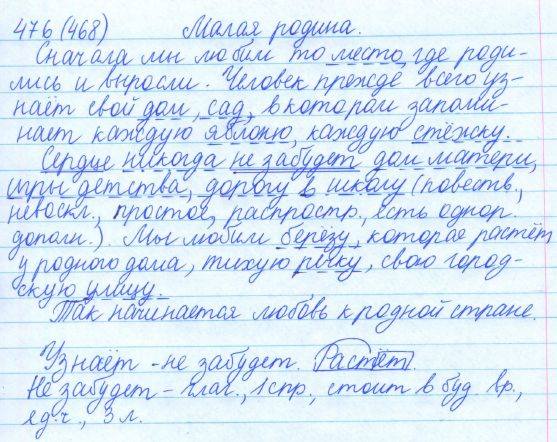 476 (468) Малая родина.
Сначала мы любим то место, где роди-
лись и выросли. Человек прежде всего уз-
наёт свой дом, сад, в котором запоми-
нает каждую яблоню, каждую стёжку.
Сердце никогда не забудет дом матери,
игры детства, дорогу в школу (повеств.,
невоскл., простое, распростр., есть однор.
дополн.). Мы любим берёзу, которая растёт
у родного дома, тихую речку, свою город-
скую улицу.
Так начинается любовь к родной стране.
Узнаёт - не забудет. Растёт.
Не забудет - глаг., 1 спр., стоит в буд. вр.,
ед. ч., 3 л.